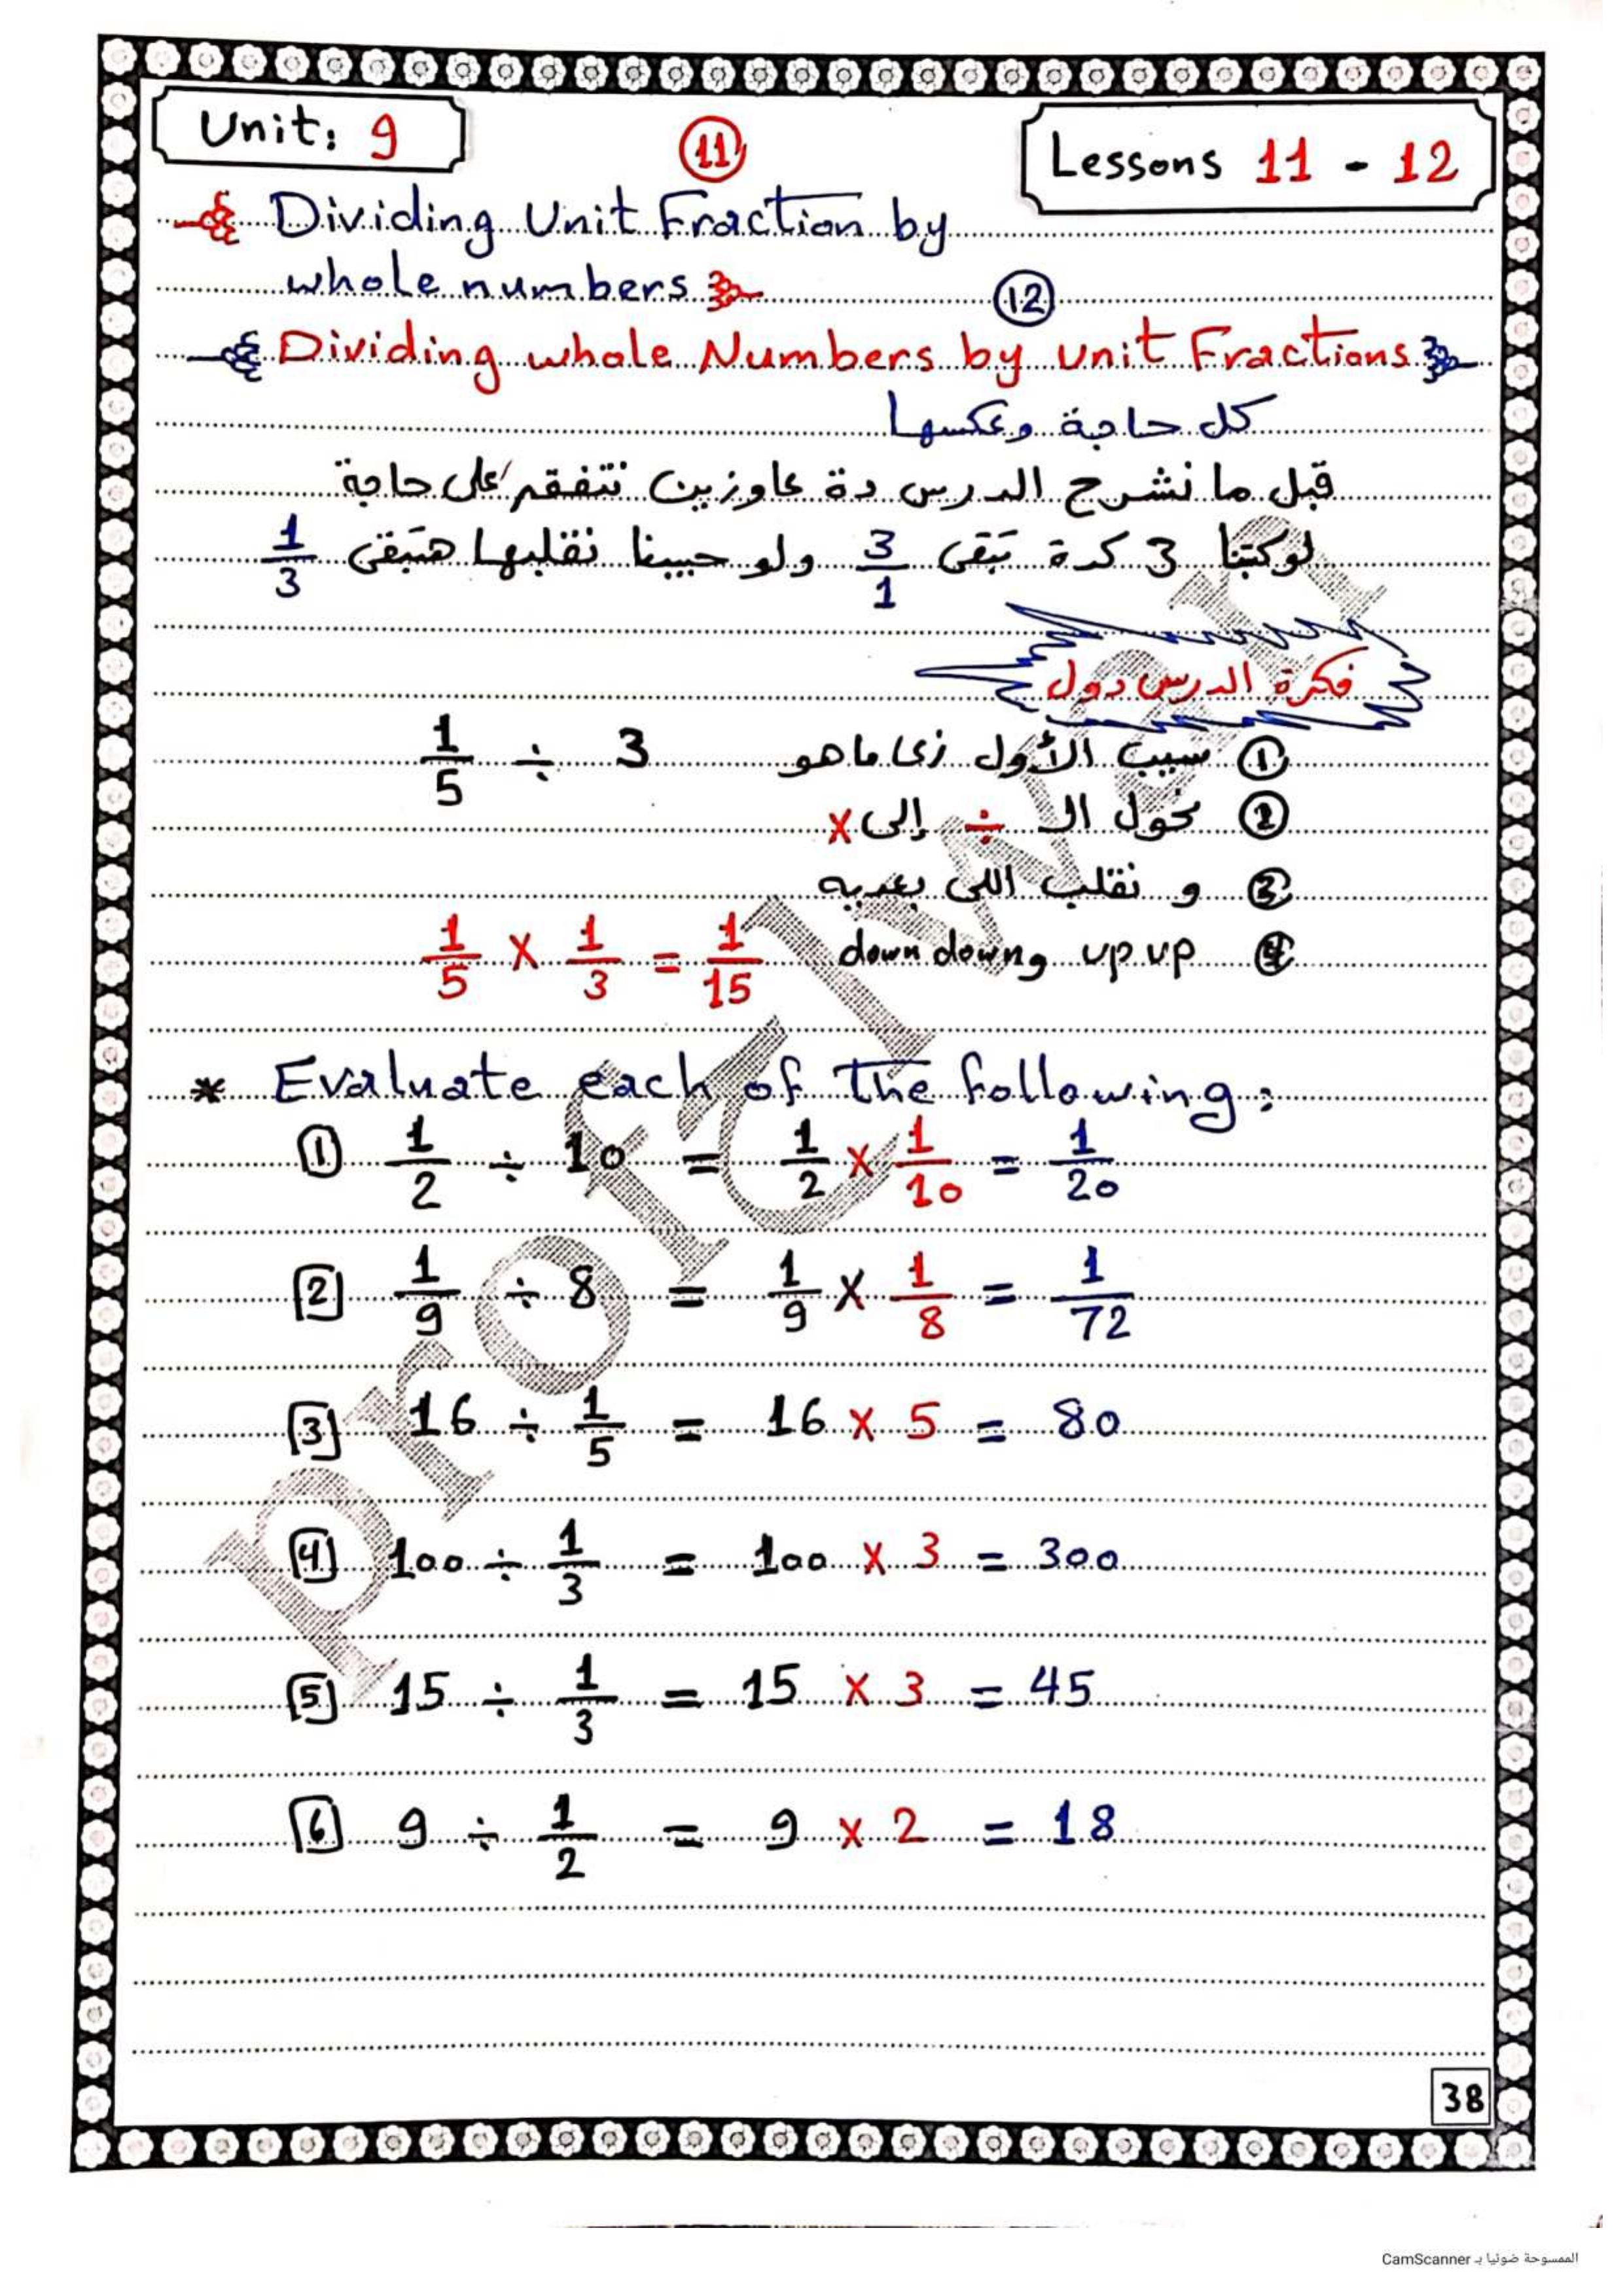 Unit: 9
11
Lessons 11 - 12
Dividing Unit Fraction by
whole numbers
12
Dividing whole Numbers by unit Fractions
كل حاجة وعكسها
قبل ما نشرح الدرس دة عاوزين نتفقم على حاجة
لو كتبنا 3 كدة تبقى 3/1 ولو حبينا نقلبها هتبقى 1/3
فكرة الدرس دول
① سيب الأول زى ما هو 1/5 ÷ 3
② نحول الـ ÷ إلى x
③ و نقلب اللى بعديه
④ up up و down down 1/5 x 1/3 = 1/15
* Evaluate each of the following:
① 1/2 ÷ 10 = 1/2 x 1/10 = 1/20
2 1/9 ÷ 8 = 1/9 x 1/8 = 1/72
3 16 ÷ 1/5 = 16 x 5 = 80
4 100 ÷ 1/3 = 100 x 3 = 300
5 15 ÷ 1/3 = 15 x 3 = 45
6 9 ÷ 1/2 = 9 x 2 = 18
38
الممسوحة ضوئيا بـ CamScanner